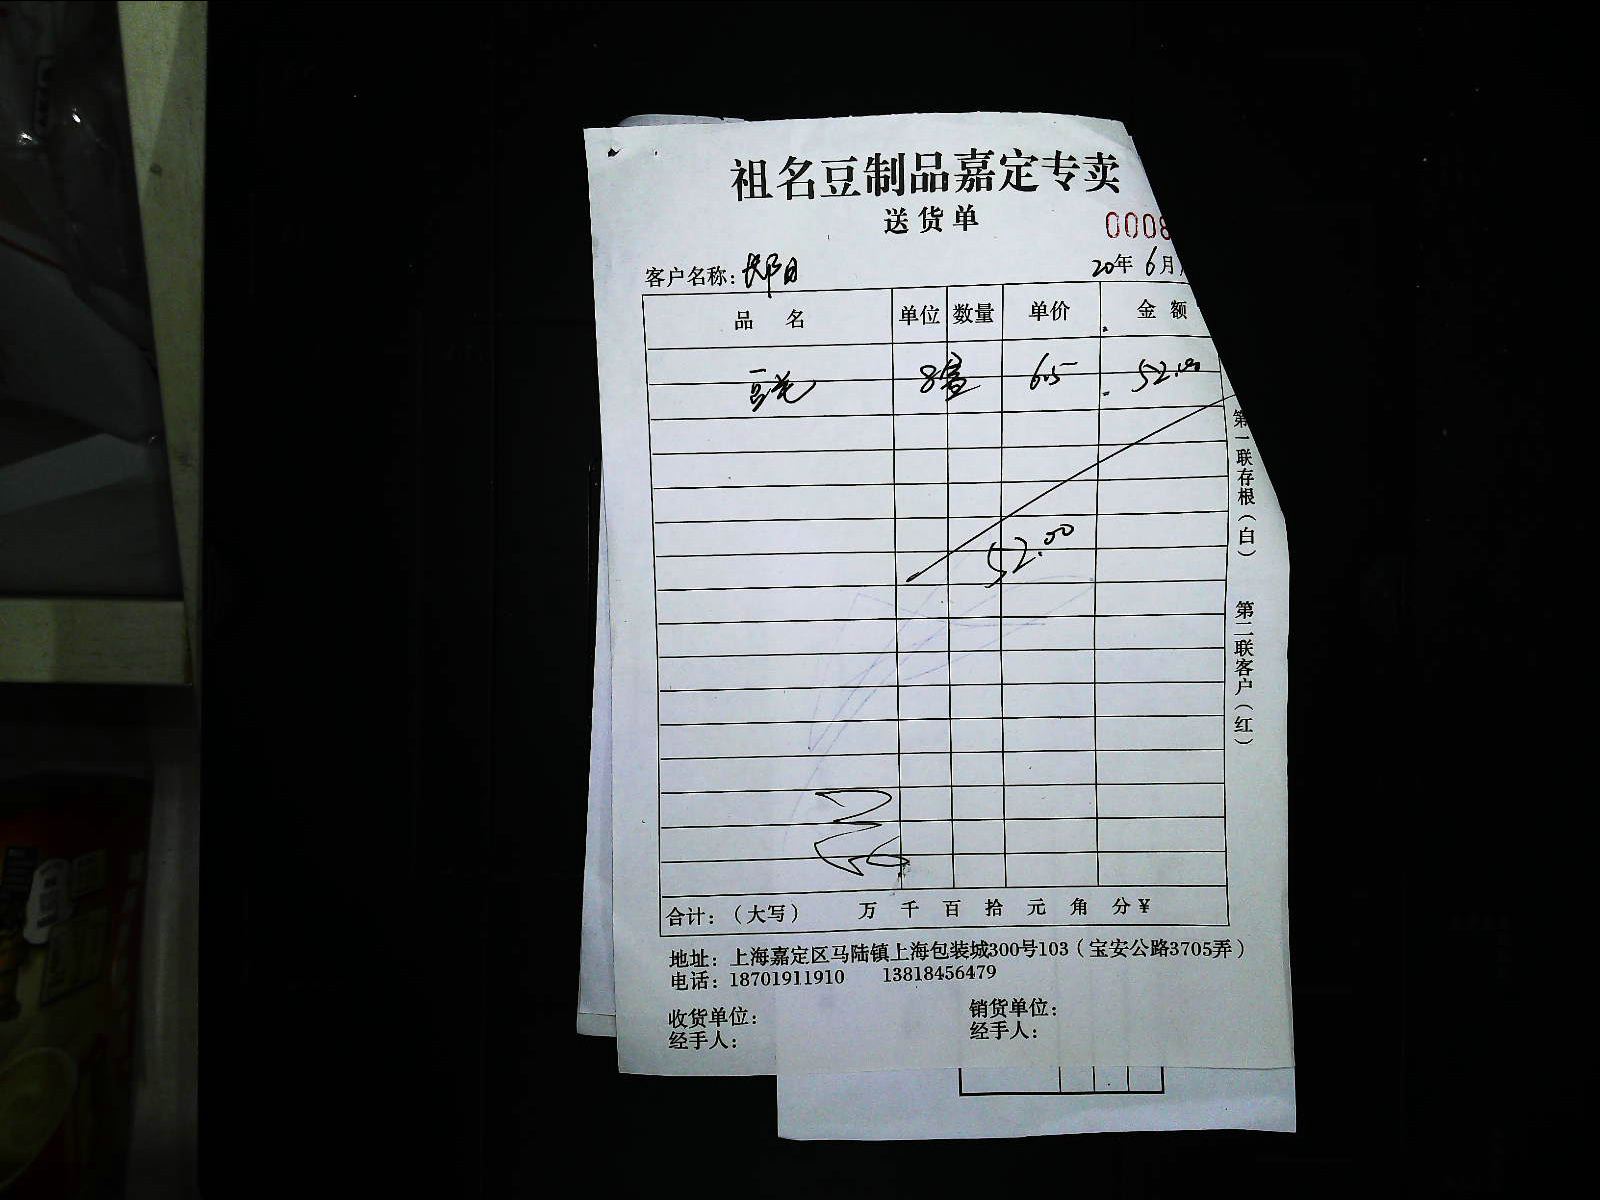 祖名豆制品嘉定专卖
送货单
0008
客户名称:
20年 6月
品 名 单位 数量 单价 金 额
8盒 6.5 52.00
52.00
第一联存根（白）
第二联客户（红）
合计：（大写） 万 千 百 拾 元 角 分￥
地址：上海嘉定区马陆镇上海包装城300号103（宝安公路3705弄）
电话：18701911910 13818456479
收货单位： 销货单位：
经手人： 经手人：